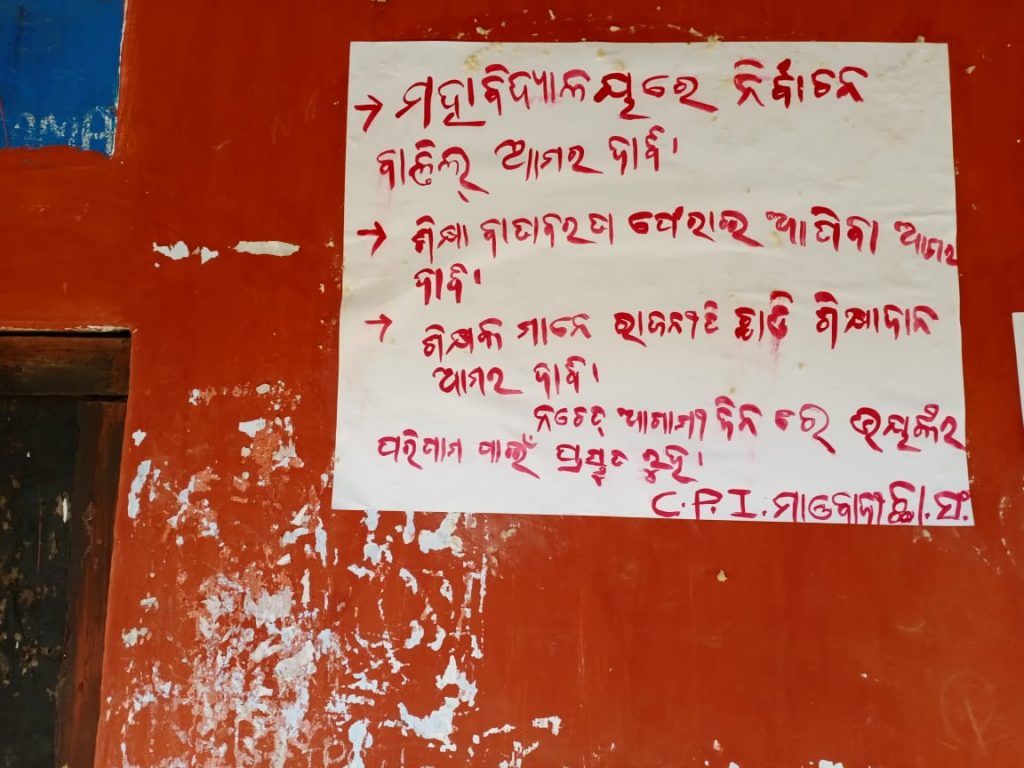 → ମହାବିଦ୍ୟାଳୟରେ ନିର୍ବାଚନ
ବାତିଲ୍ ଆମର ଦାବି।
→ ଶିକ୍ଷା ବାତାବରଣ ଫେରାଇ ଆଣିବା ଆମର
ଦାବି।
→ ଶିକ୍ଷକ ମାନେ ରାଜନୀତି ଛାଡି ଶିକ୍ଷାଦାନ
ଆମର ଦାବି।
ନଚେତ୍ ଆଗାମୀ ଦିନ ରେ ଭୟଙ୍କର
ପରିଣାମ ପାଇଁ ପ୍ରସ୍ତୁତ ରୁହ।
C.P.I. ମାଓବାଦୀ ଛା.ସଂ.